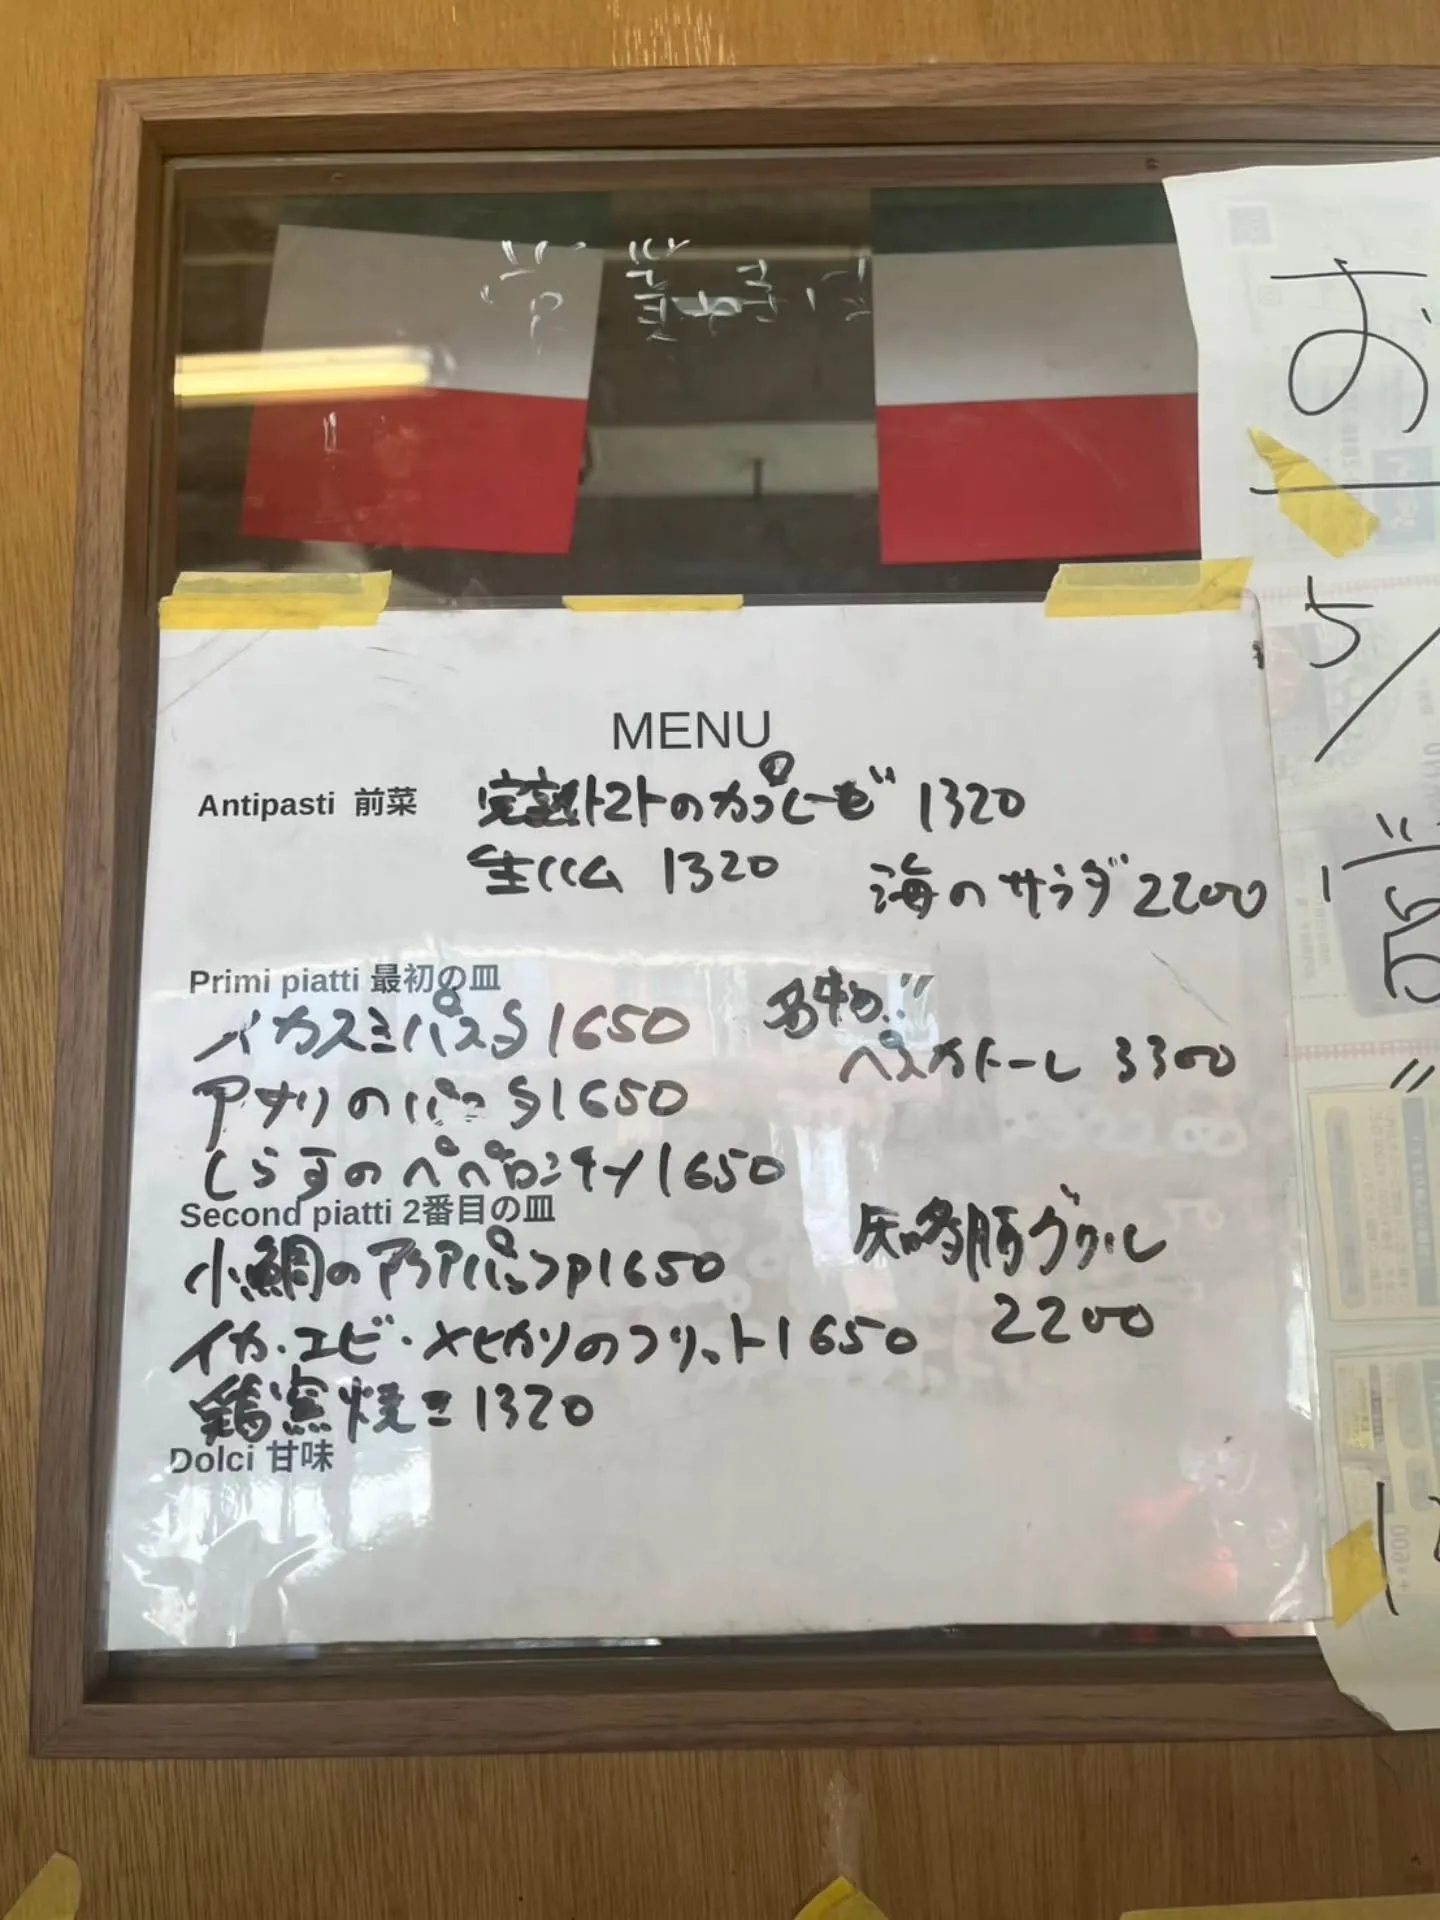 MENU
Antipasti 前菜 完熟トマトのカプレーゼ 1320
生ハム 1320 海のサラダ 2200
Primi piatti 最初の皿
イカスミパスタ 1650
名物!!
ペスカトーレ 3300
アサリのパスタ 1650
しらすのペペロンチーノ 1650
Second piatti 2番目の皿
小鯛のアクアパッツァ 1650
豚グリル
2200
イカ・エビ・メヒカリのフリット 1650
鶏窯焼き 1320
Dolci 甘味
お
5/
営